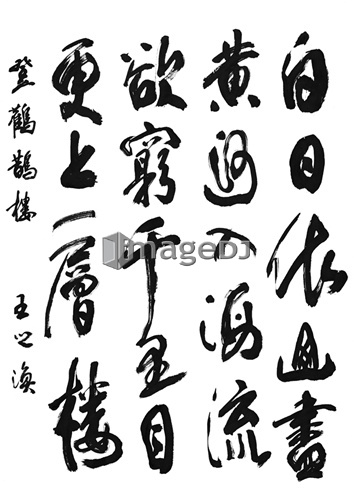 白日依山盡
黄河入海流
欲窮千里目
更上一層樓
登鸛鵲樓
王之渙
imageDJ